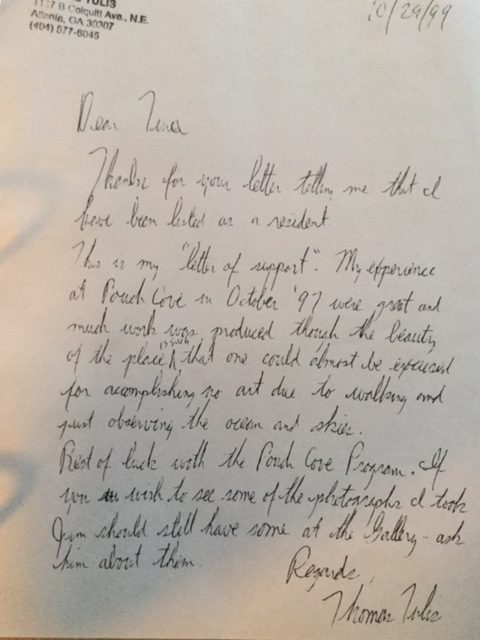 TULIS
1157 B Colquitt Ave., N.E.
Atlanta, GA 30307
(404) 577-6045
10/29/99
Dear Tina
Thanks for your letter telling me that I
have been listed as a resident.
This is my "letter of support". My experience
at Pouch Cove in October '97 were great and
much work was produced though the beauty
of the place is such that one could almost be excused
for accomplishing no art due to walking and
just observing the ocean and skies.
Best of luck with the Pouch Cove Program. If
you wish to see some of the photographs I took
Jim should still have some at the Gallery - ask
him about them.
Regards,
Thomas Tulis